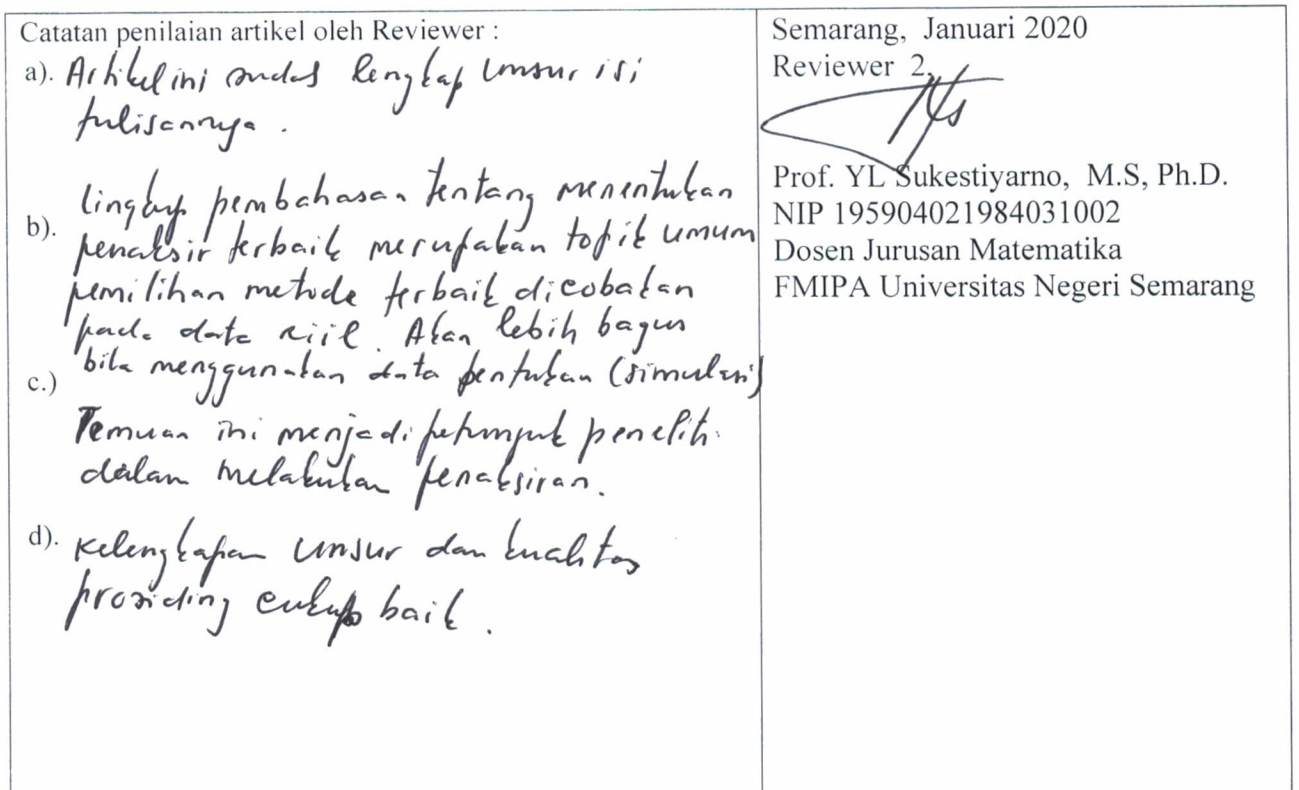 Catatan penilaian artikel oleh Reviewer :
a). Artikel ini sudah lengkap unsur isi
tulisannya .
b). lingkup pembahasan tentang menentukan
penaksir terbaik merupakan topik umum
pemilihan metode terbaik dicobakan
pada data riil. Akan lebih bagus
bila menggunakan data bentukan (simulasi)
c.) Temuan ini menjadi petunjuk peneliti
dalam melakukan penaksiran.
d). Kelengkapan unsur dan kualitas
prosiding cukup baik .
Semarang, Januari 2020
Reviewer 2,
Prof. YL Sukestiyarno, M.S, Ph.D.
NIP 195904021984031002
Dosen Jurusan Matematika
FMIPA Universitas Negeri Semarang